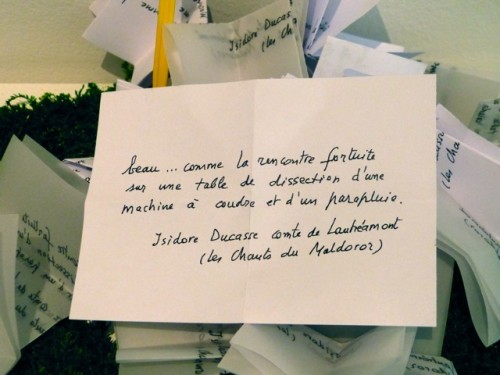 Isidore Ducasse
(les Cha
beau ... comme la rencontre fortuite
sur une table de dissection d'une
machine à coudre et d'un parapluie.
Isidore Ducasse comte de Lautréamont
(les Chants du Maldoror)